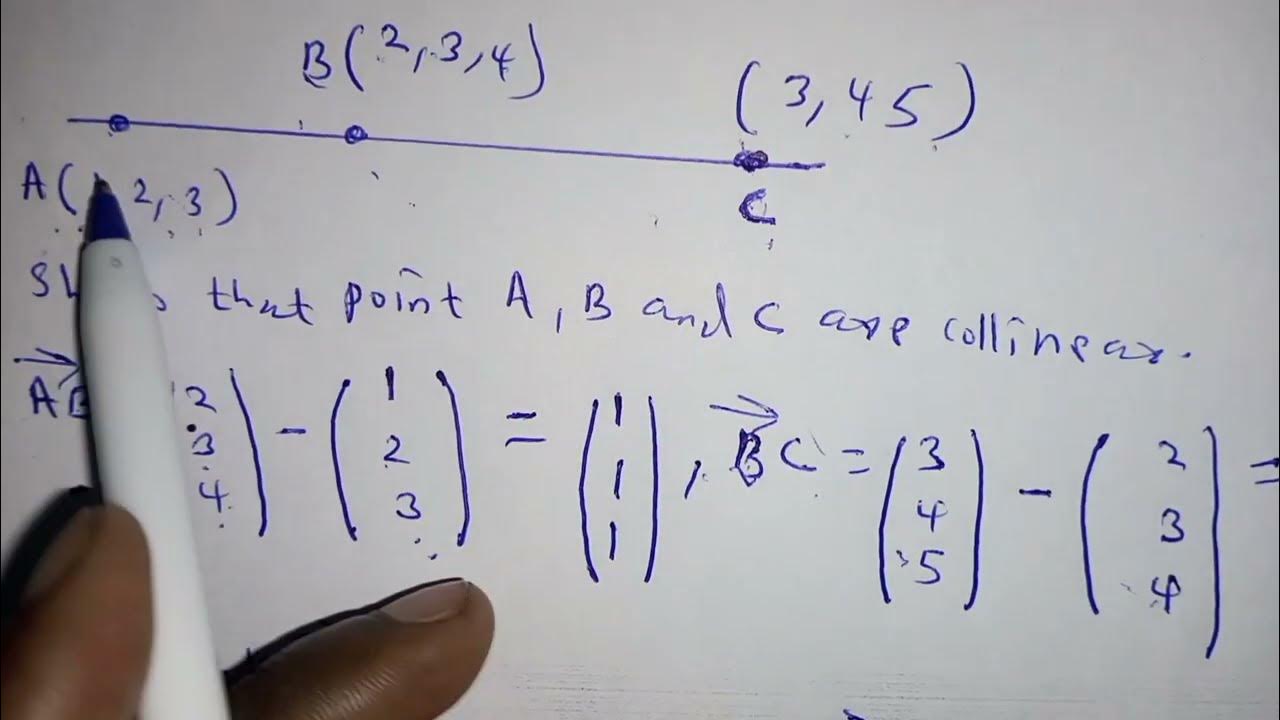 B(2,3,4)
(3,45)
A( 2,3)
C
that point A, B and C are collinear.
2 3 4 ) - ( 1 2 3 ) = ( 1 1 1 ), BC = ( 3 4 5 ) - ( 2 3 4 ) =